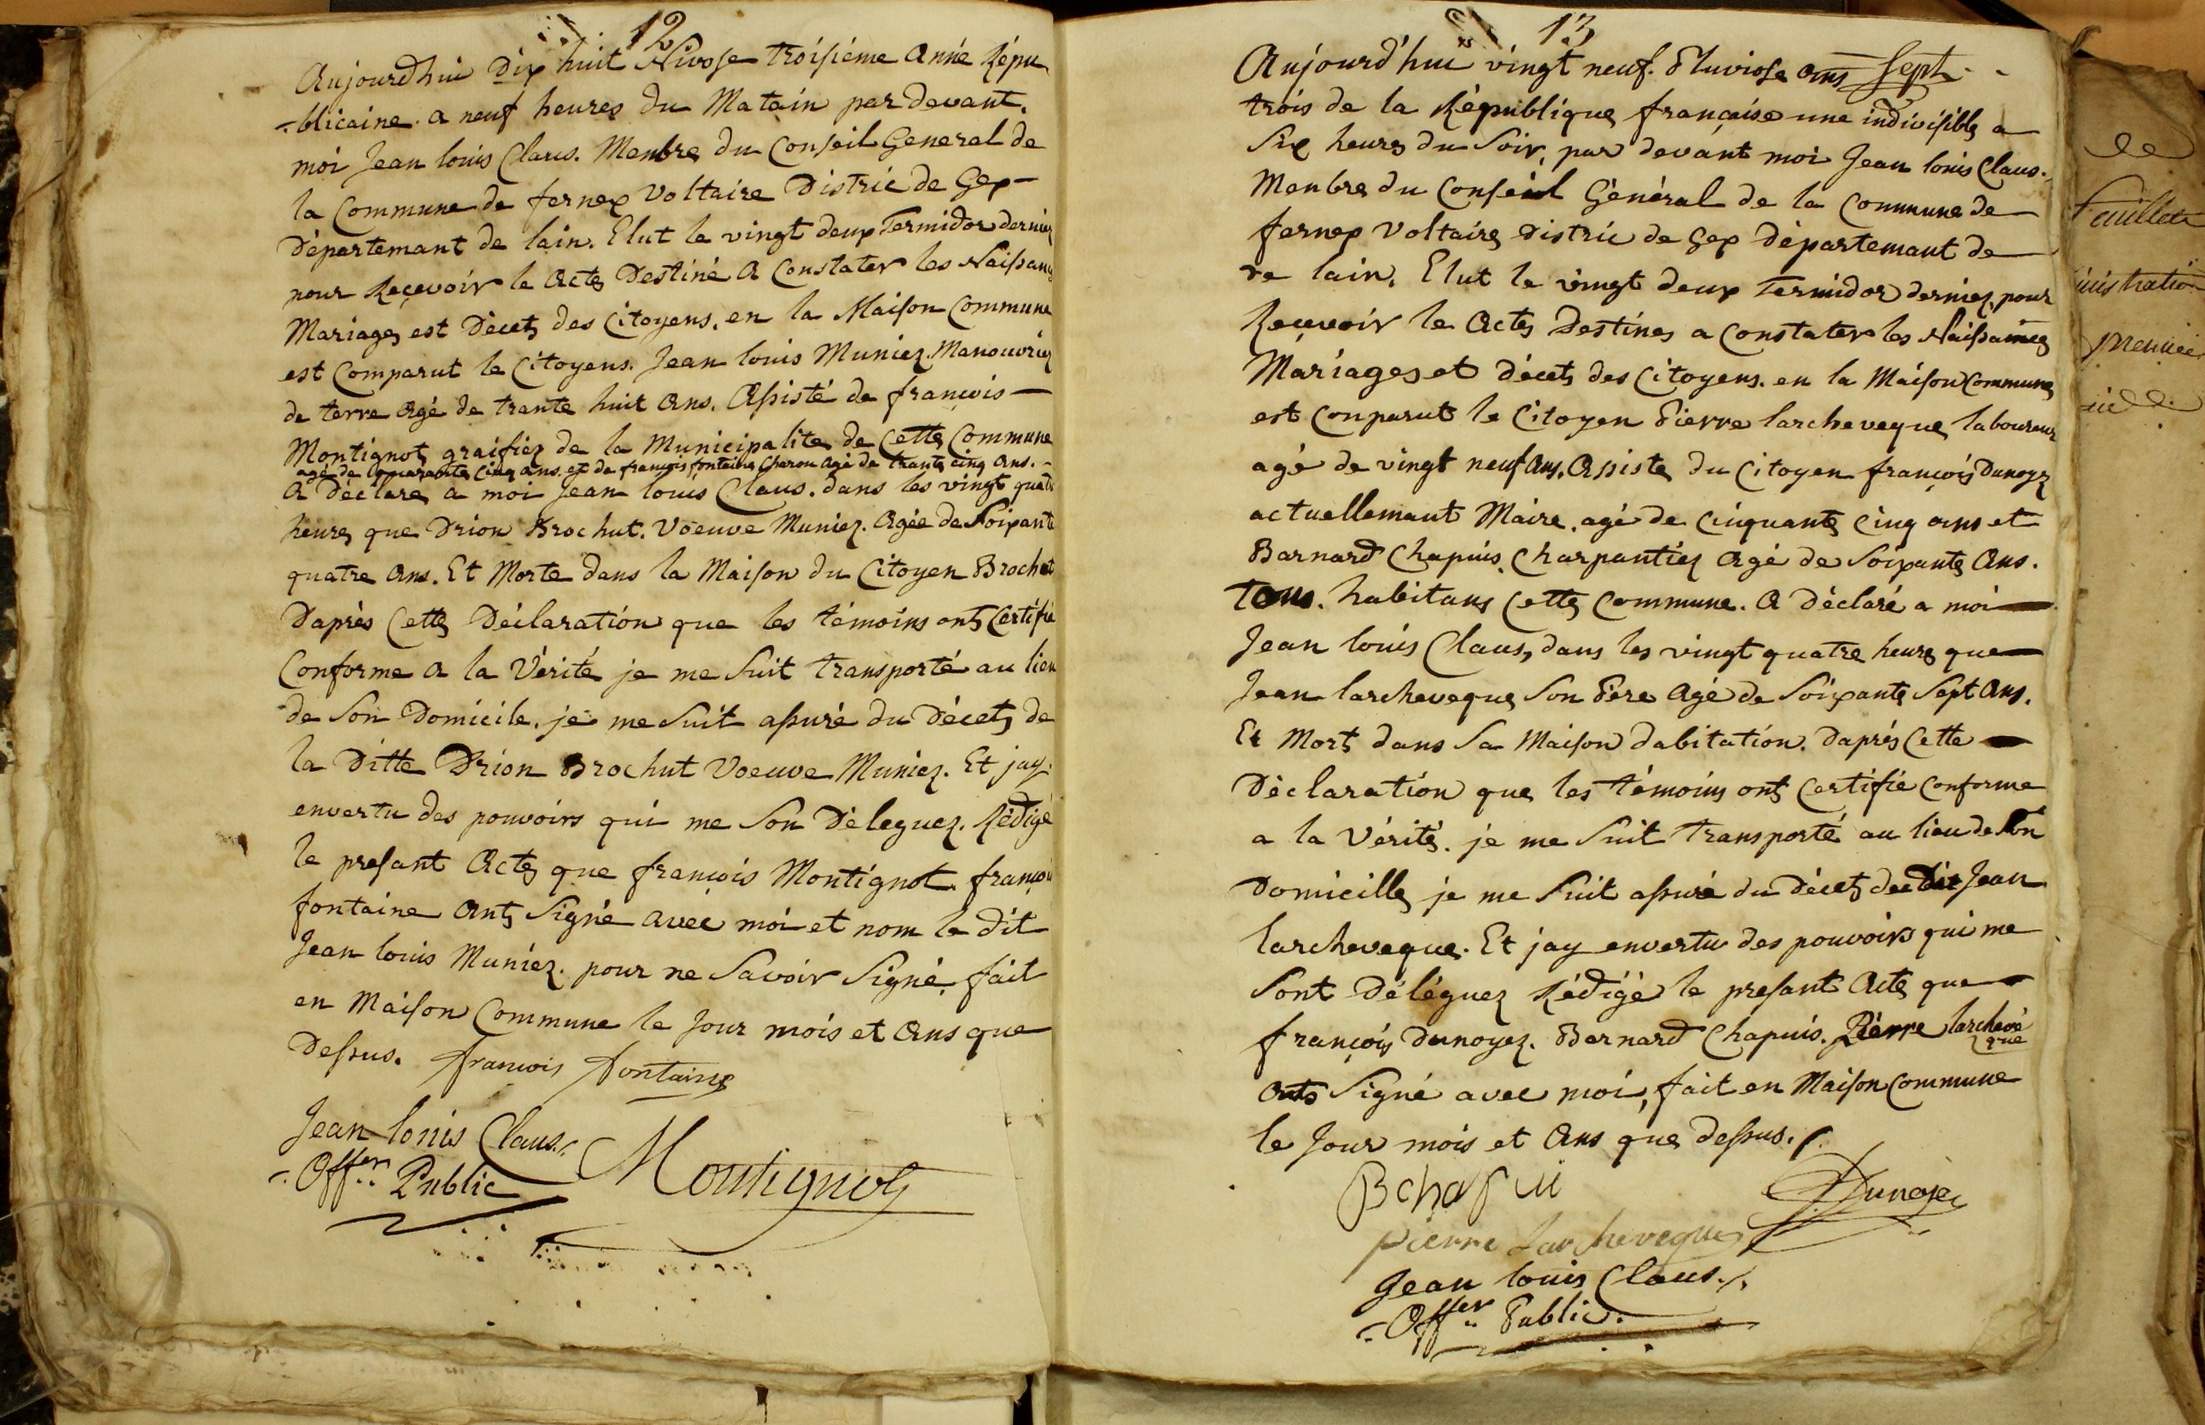 12
Aujourdhui Dix huit Nivose troisiéme Anné Répu
-blicaine. a neuf heures du Matain par devant.
moi Jean louis Claus. Menbre du Conseil General de
la Commune de fernex Voltaire Distric de Gex-
Départemant de lain. Elut le vingt deux Termidor dernier
pour Reçevoir le Actes Destiné A Constater les Naissanç
Mariages est Décets des Citoyens. en la Maison Commune
est Comparut le Citoyens. Jean louis Muniez. Manouvriez
de terre Agé de trante huit Ans. Assisté de françois
Montignot graifiez de la Municipalité de Cette Commune
agé de quarante Cinq ans. et de françois fontaine Charon Agé de trante cinq ans.
A Déclaré a moi Jean louis Claus. dans les vingt quatr
heures que Drion Brochut. Voeuve Muniez. Agée de Soixante
quatre Ans. Et Morte dans la Maison du Citoyen Brochet
Daprès Cette Déclaration que les témoins onts Certifié
Conforme A la Vérité je me Suit transporté au lieu
de Son Domicile. je me Suit assuré du Décets de
la Ditte Drion Brochut Voeuve Muniez. Et jay
envertu des pouvoirs qui me Son Déleguez. Rédigé
le presant Actes que françois Montignot. françoi
fontaine Onts Signé avec moi et nom le dit
Jean louis Muniez. pour ne Savoir Signé, fait
en Maison Commune le Jour mois et Ans que
Dessus. francois fontaine
Jean louis Claus.
Offer. Public Montignot
13
Aujourd'hui vingt neuf. Pluviose Ans Sept
trois de la République française une indivisible a
Six heures du Soir, par devant moi Jean louis Claus.
Menbre du Conseil Général de la Commune de
fernex Voltaire Distric de Gex Départemant de
re lain. Elut le vingt deux Termidor derniez, pour
Reçevoir le Actes Destines a Constater les Naissances
Máriages et décets des Citoyens. en la Maison Commune
est Conparut le Citoyen Pierre larcheveque laboureur
agé de vingt neuf Ans. Assiste du Citoyen françois Dunoyz
actuellemant Maire. agé de Cinquante Cinq ans et
Barnard Chapuis Charpantiez Agé de Soixante Ans.
Tous. habitans Cette Commune. A déclaré a moi
Jean louis Claus, dans les vingt quatre heures que
Jean larcheveque Son Père Agé de Soixante Sept Ans.
Et Mort dans Sa Maison dabitation. Daprés Cette
Déclaration que les témoins onts Certifié Conforme
a la Vérité. je me Suit transporté au lieu de Son
Domicille je me Suit assuré du Décets du Dit Jean
larcheveque. Et jay envertu des pouvoirs qui me
Sont Déléguez Rédigé le presant Acte que
françois Dunoyez. Barnard Chapuis. Piérre larchevé
que
Onts Signé avec moi, fait en Maison Commune
le Jour mois et Ans que dessus.
B chapui Dunoyer
pierre Larcheveque
Jean louis Claus.
Offer. Public.